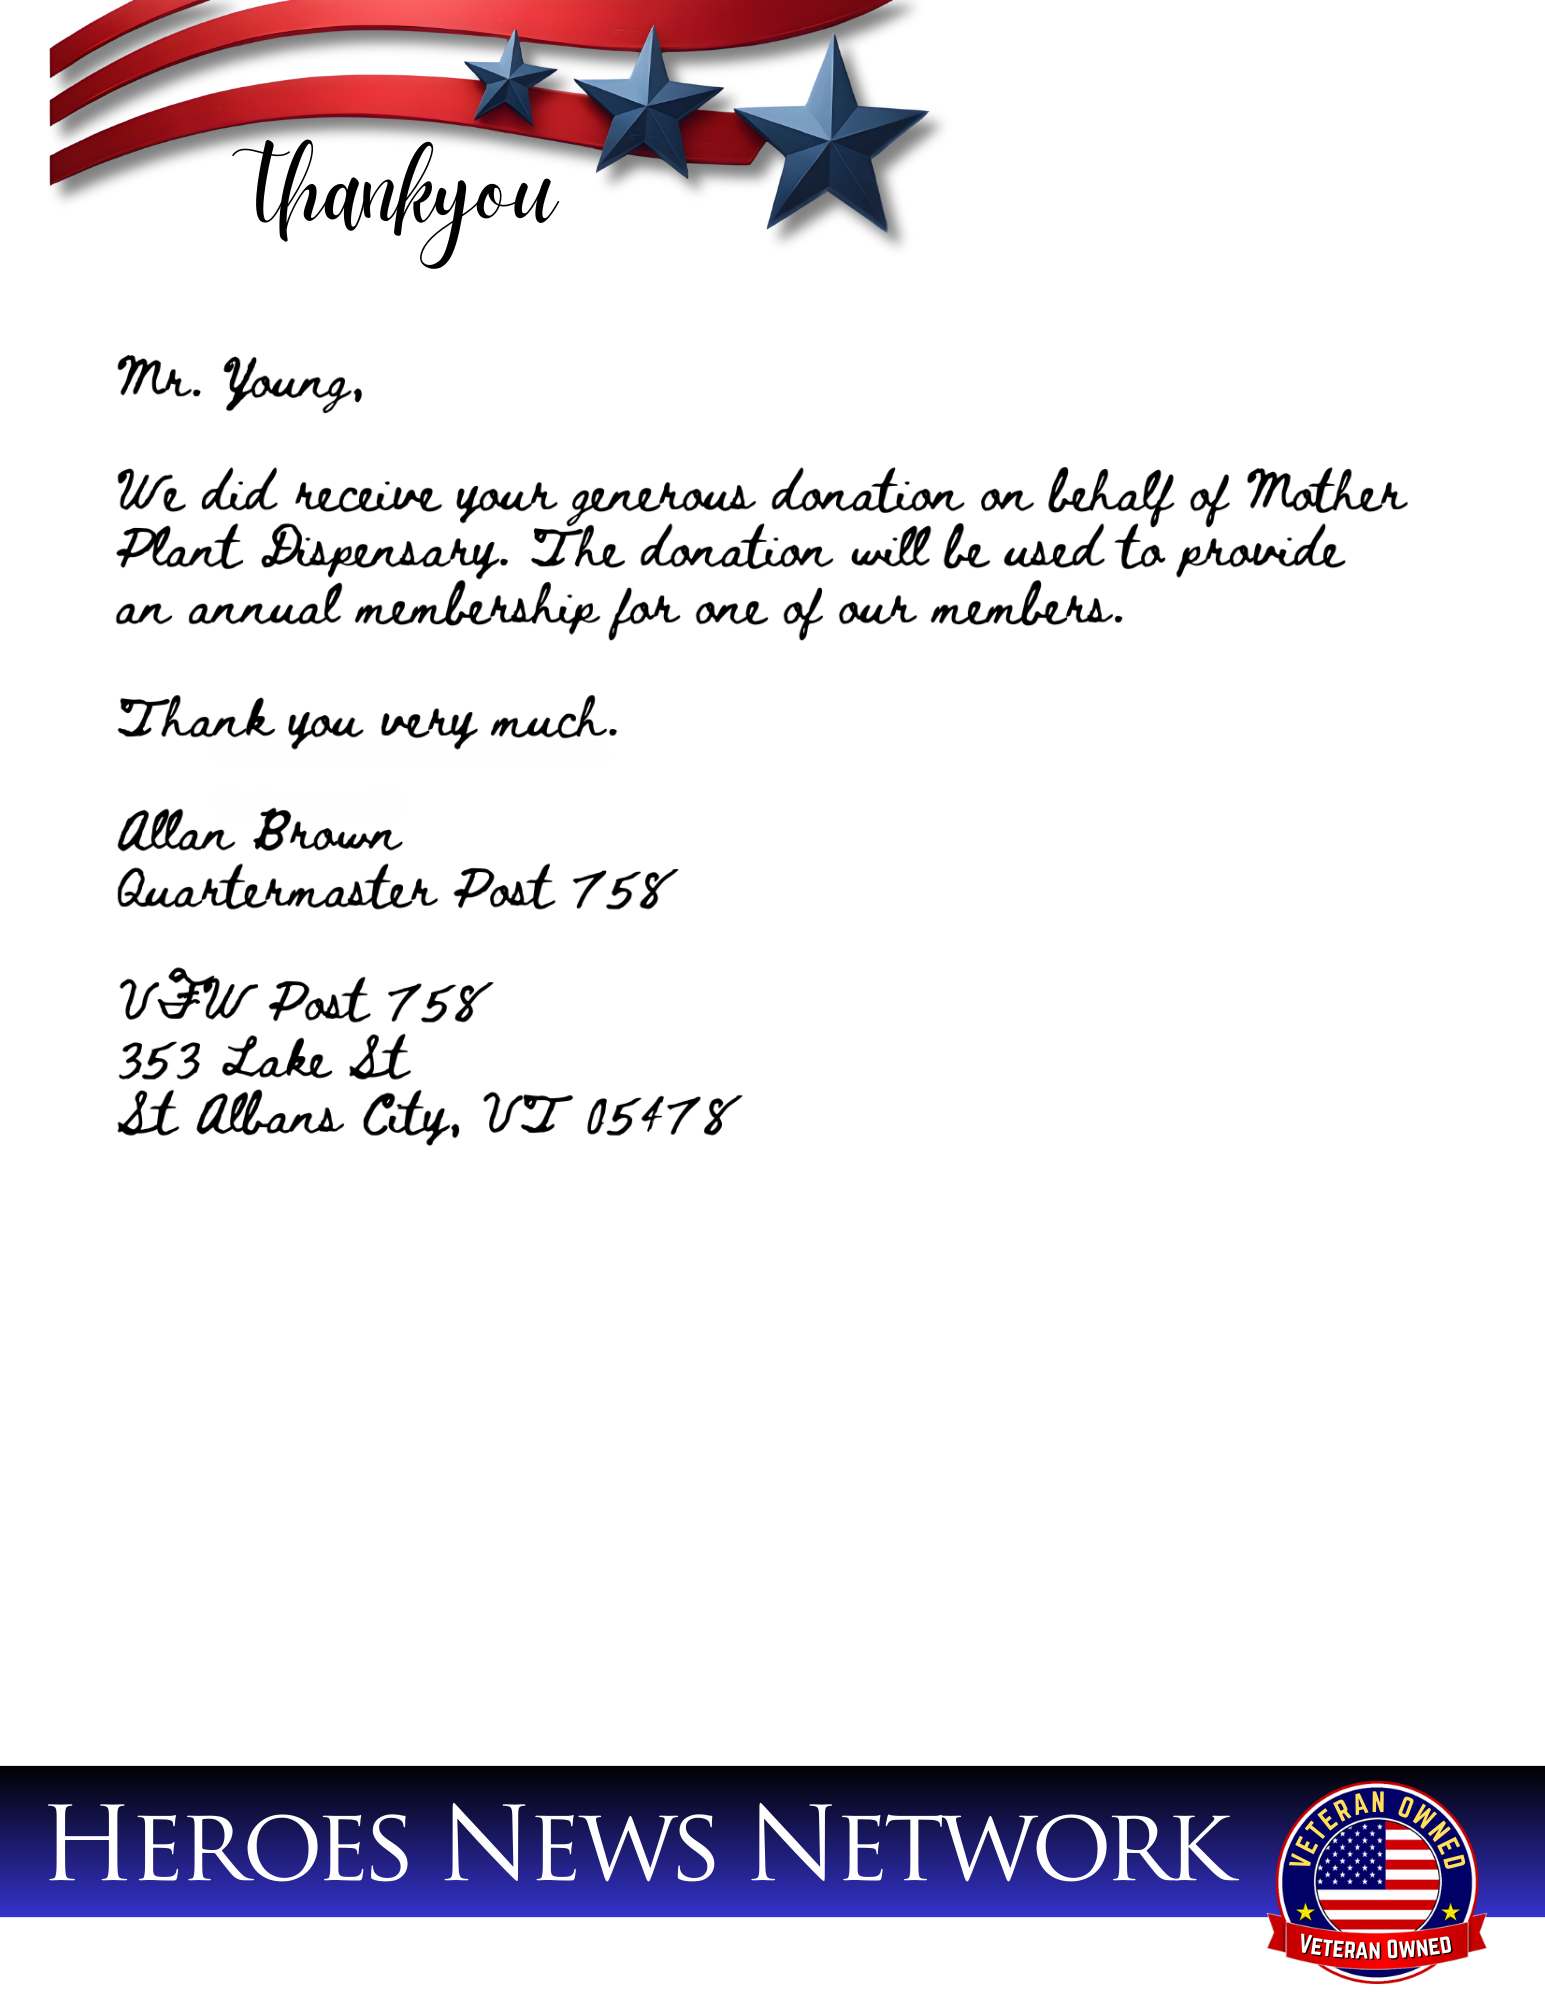 thankyou
Mr. Young,
We did receive your generous donation on behalf of Mother
Plant Dispensary. The donation will be used to provide
an annual membership for one of our members.
Thank you very much.
Allan Brown
Quartermaster Post 758
VFW Post 758
353 Lake St
St Albans City, VT 05478
HEROES NEWS NETWORK
VETERAN OWNED
VETERAN OWNED